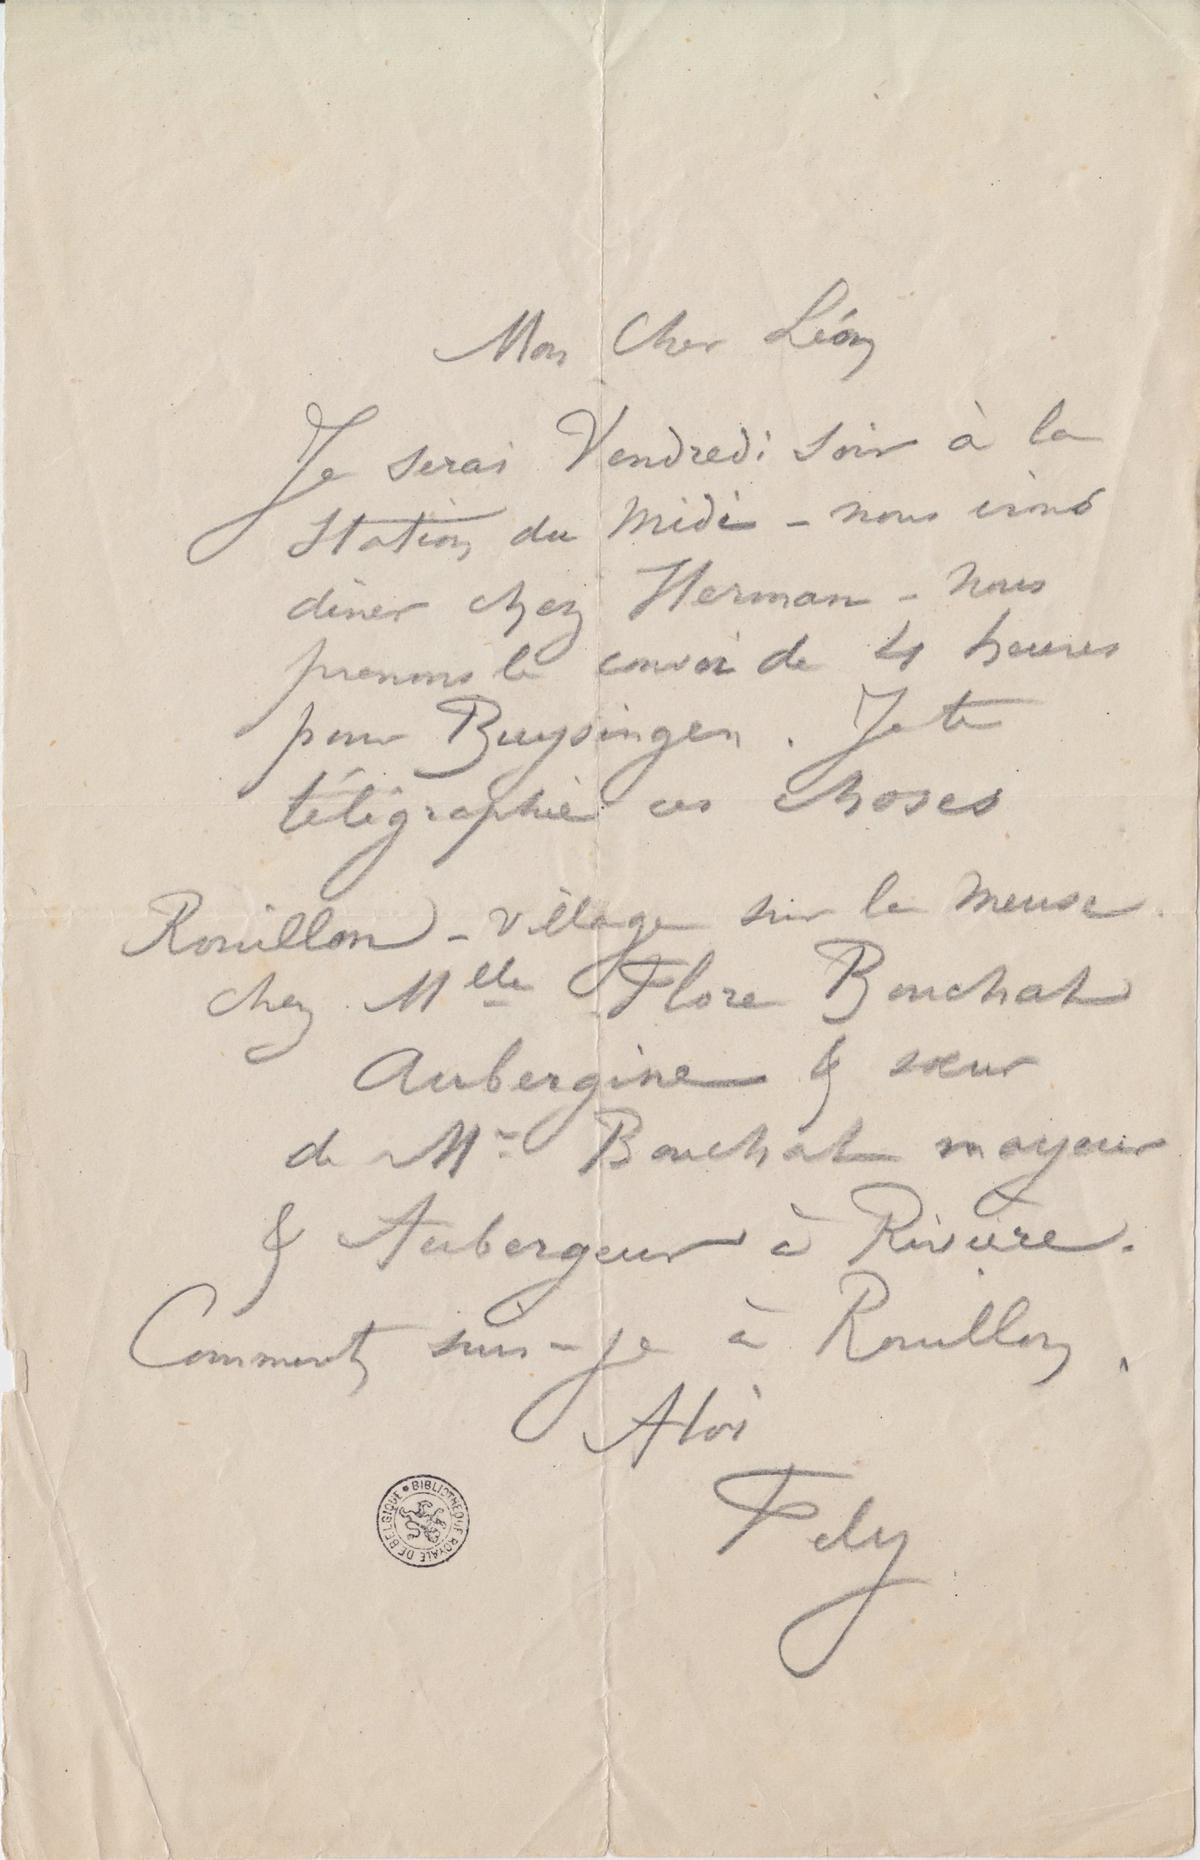 Mon Cher Léon
Je serai Vendredi soir à la
Station du Midi - nous irons
diner chez Herman - nous
prenons le convoi de 4 heures
pour Buysingen. Je te
télégraphie ces choses
Rouillon - village sur la Meuse
chez Mlle Flore Bouchat
Aubergine & sœur
de Mr Bouchat mayeur
& Aubergeur à Rivière.
Comment suis-je à Rouillon,
Atoi
Fély
BIBLIOTHEQUE ROYALE DE BELGIQUE